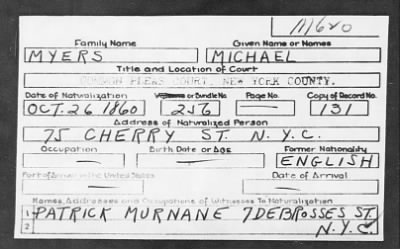 M620
Family Name Given Name or Names
MYERS MICHAEL
Title and Location of Court
COMMON PLEAS COURT, NEW YORK COUNTY.
Date of Naturalization Volume or Bundle No. Page No. Copy of Record No.
OCT. 26 1860 256 — 131
Address of Naturalized Person
75 CHERRY ST. N.Y.C.
Occupation Birth Date or Age Former Nationality
— — ENGLISH
Port of Arrival in the United States Date of Arrival
— —
Names, Addresses and Occupations of Witnesses To Naturalization
1 PATRICK MURNANE 7 DEBROSSES ST.
2 N.Y.C.